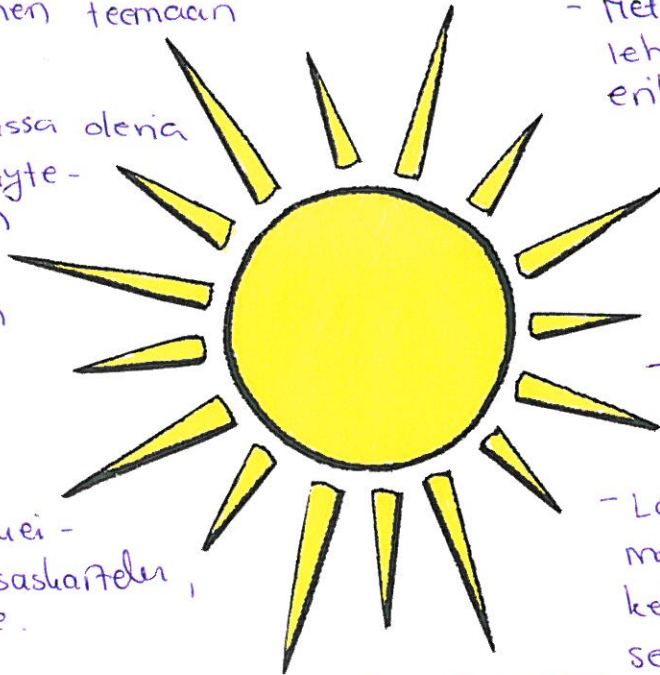 nen teemaan
ssa olevia
äyte-
n
n
uei-
saskartelu,
e.
- Met
leh
eril
-
- La
ma
ke
se